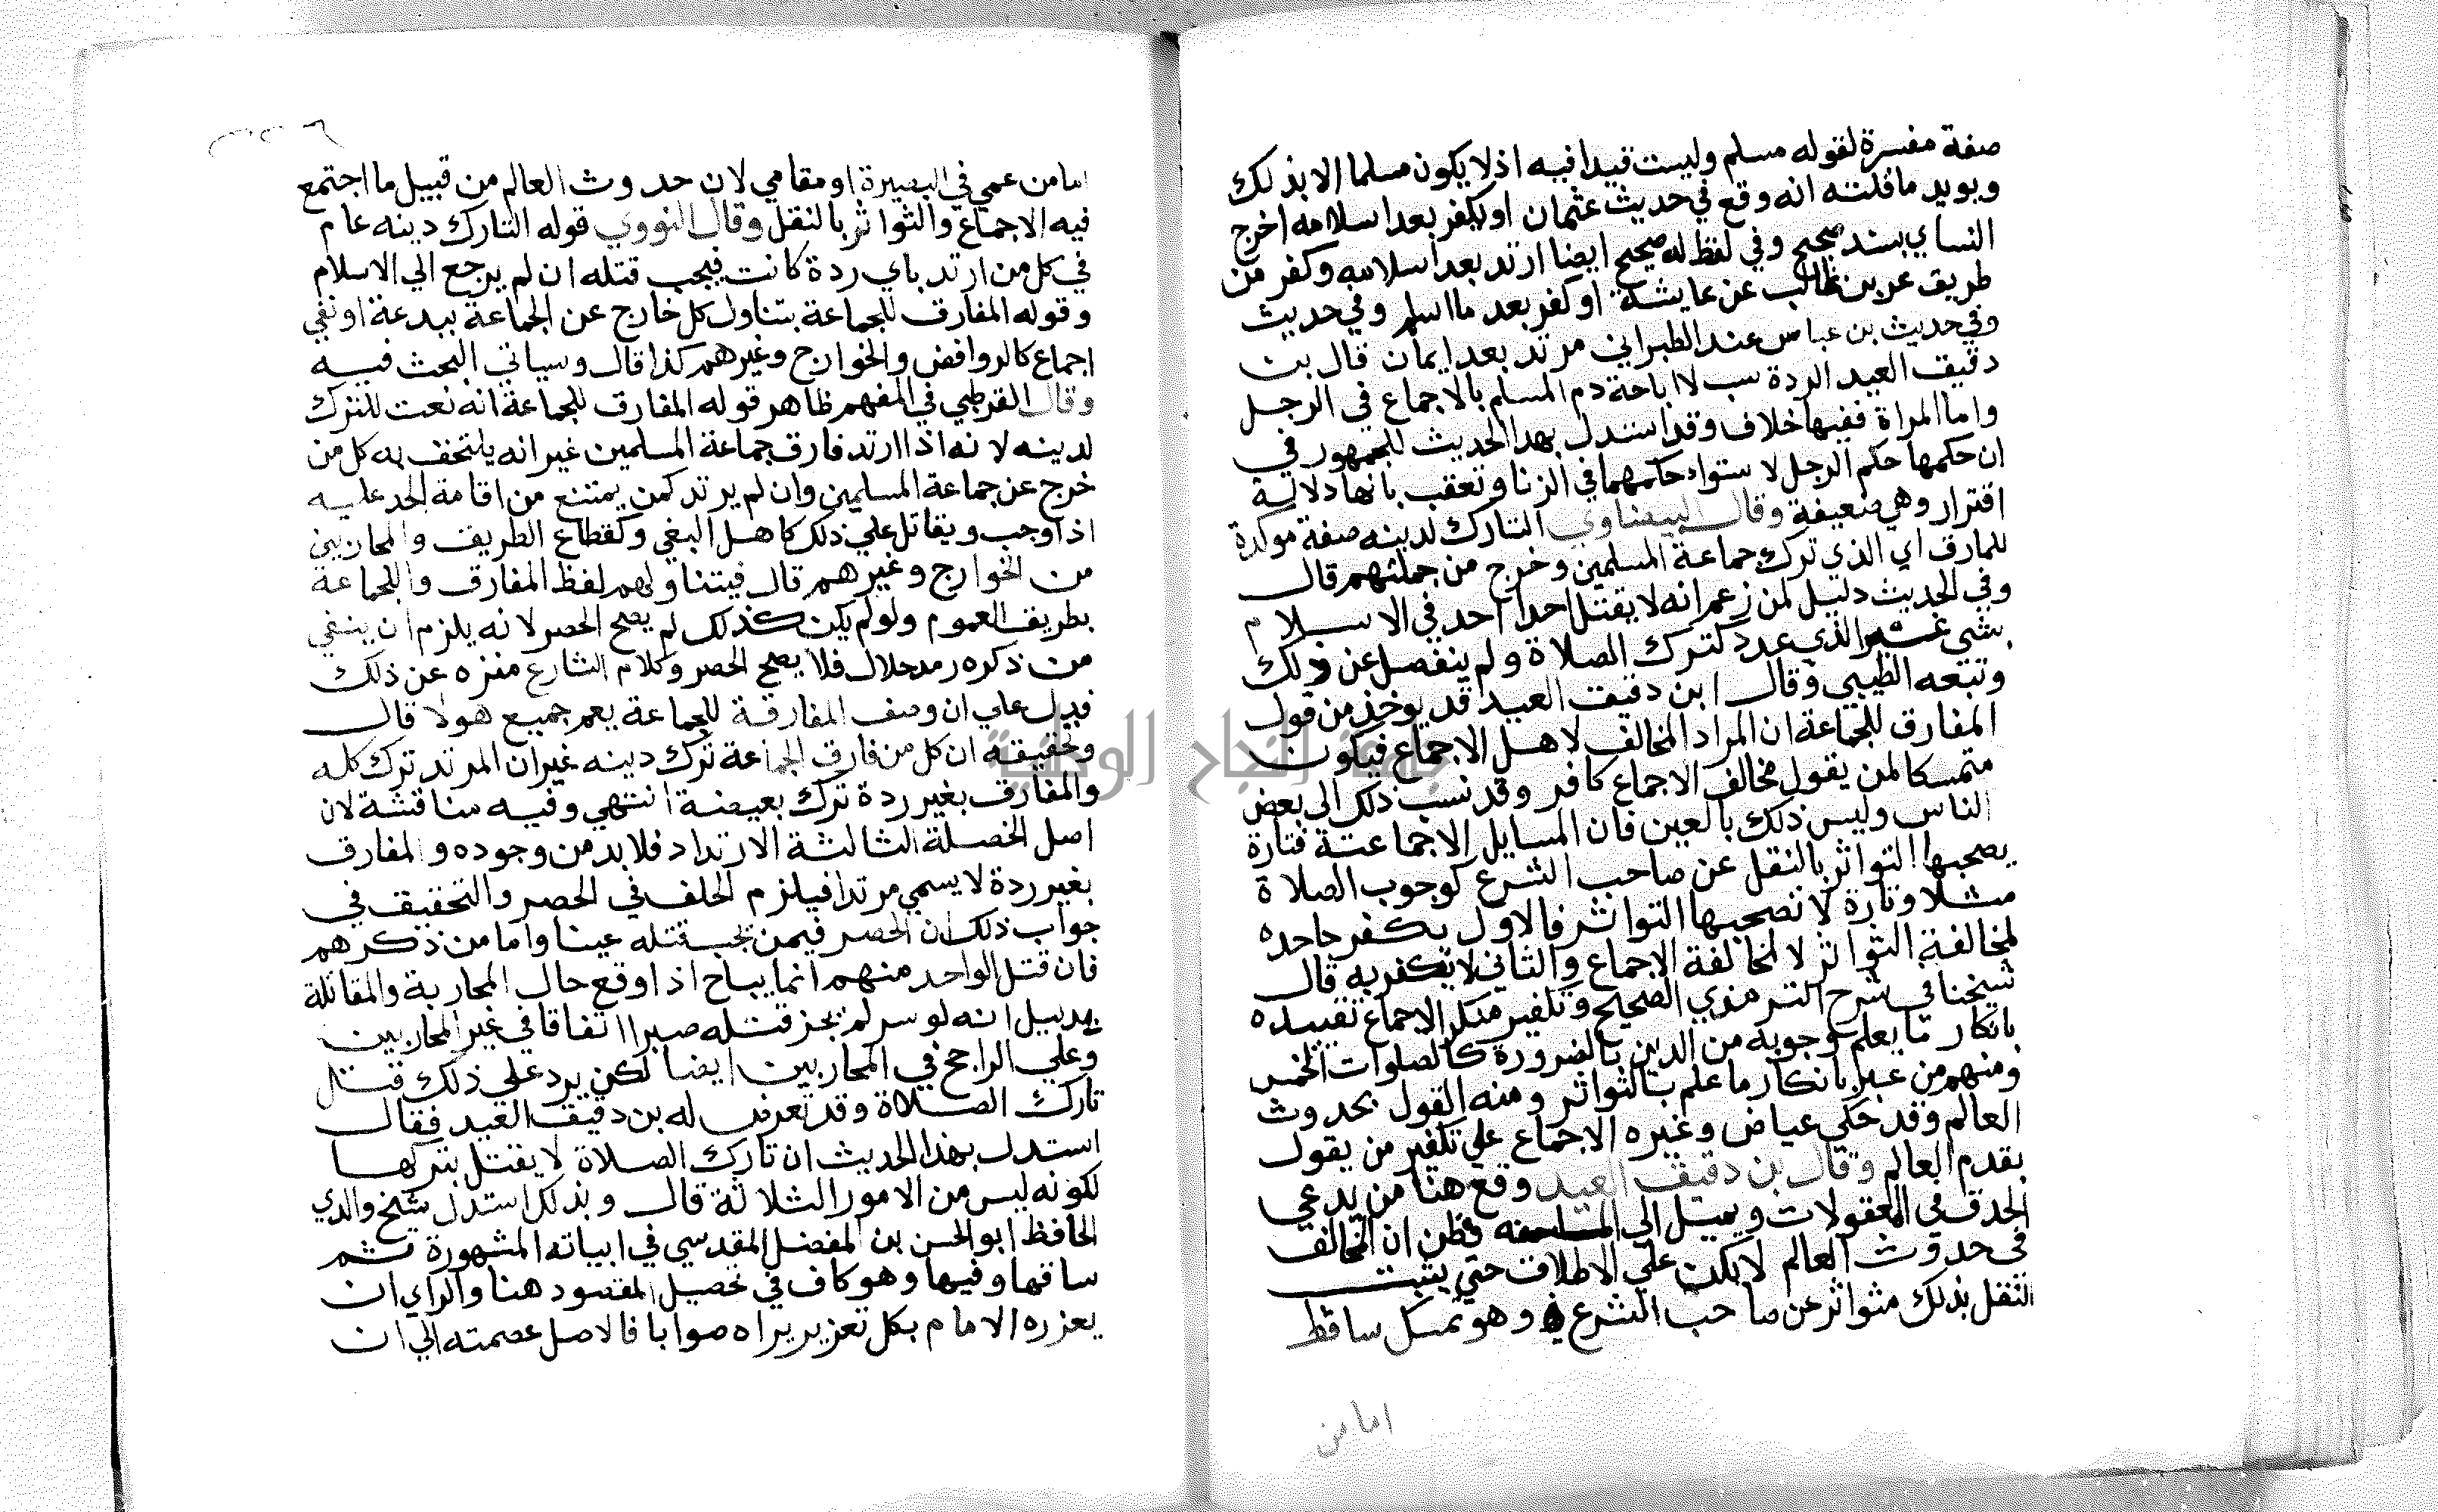 صفة مفسرة لقوله مسلم وليست قيدا فيه اذ لا يكون مسلما الا بذلك
ويويد ما قلته انه وقع في حديث عثمان او يكفر بعد اسلامه اخرج
النساي بسند صحيح وفي لفظ له صحيح ايضا ارتد بعد اسلامه وكفر من
طريق عمر بن غالب عن عايشة او كفر بعد ما اسلم وفي حديث
وفي حديث بن عباس عند الطبراني مرتد بعد ايمان قال بن
دقيق العيد الردة سبب لاباحة دم المسلم بالاجماع في الرجل
واما المراة ففيها خلاف وقد استدل بهذا الحديث للجمهور في
ان حكمها حكم الرجل لاستواء حكمهما في الزنا وتعقب بانها دلالة
اقتران وهي ضعيفة وقال البيضاوي التارك لدينه صفة موكدة
للمارق اي الذي ترك جماعة المسلمين وخرج من جملتهم قال
وفي الحديث دليل لمن زعم انه لا يقتل احدا احد في الاسلام
بشي غير الذي عدد كترك الصلاة ولم ينفصل عن ذلك
وتبعه الطيبي وقال ابن دقيق العيد قد يوخذ من قول
المفارق للجماعة ان المراد المخالف لاهل الاجماع فيكون
متمسكا لمن يقول مخالف الاجماع كافر وقد نسب ذلك الى بعض
الناس وليس ذلك بالهين فان المسايل الاجماعية فتارة
يصحبها التواتر بالنقل عن صاحب الشرع كوجوب الصلاة
مثلا وتارة لا تصحبها التواتر فالاول يكفر جاحده
لمخالفة التواتر لا لمخالفة الاجماع والثاني لا يكفر به قال
شيخنا في شرح الترمذي الصحيح وتكفير منكر الاجماع تقييده
بانكار ما يعلم وجوبه من الدين بالضرورة كالصلوات الخمس
ومنهم من عبر بانكار ما علم بالتواتر ومنه القول بحدوث
العالم وقد حكي عياض وغيره الاجماع علي تكفير من يقول
بقدم العالم وقال بن دقيق العيد وقع هنا من يدعي
الحذق في المعقولات ويميل الى فظن ان المخالف
في حدوث العالم لا يكفر علي الاطلاق حتي يثبت
النقل بذلك متواتر عن صاحب الشرع وهو تمسك ساقط
اما من
اما من عمي في البصيرة او مقامي لان حدوث العالم من قبيل ما اجتمع
فيه الاجماع والتواتر بالنقل وقال النووي قوله التارك دينه عام
في كل من ارتد باي ردة كانت فيجب قتله ان لم يرجع الي الاسلام
وقوله المفارق للجماعة يتناول كل خارج عن الجماعة ببدعة او نفي
اجماع كالروافض والخوارج وغيرهم كذا قال وسياتي البحث فيه
وقال القرطبي في المفهم ظاهر قوله المفارق للجماعة انه نعت للترك
لدينه لانه اذا ارتد فارق جماعة المسلمين غير انه يلتحق به كل من
خرج عن جماعة المسلمين وان لم يرتد كمن يمتنع من اقامة الحد عليه
اذا وجب ويقاتل علي ذلك كاهل البغي وكقطاع الطريق والمحاربين
من الخوارج وغيرهم قال فيتناولهم لفظ المفارق واللجماعة
بطريق العموم ولو لم يكن كذلك لم يصح الحصر لانه يلزم ان ينفي
من ذكره ومدحلال فلا يصح الحصر وكلام الشارع منزه عن ذلك
فيدل علي ان وصف المفارقة للجماعة يعم جميع هولا قال
وتحقيقه ان كل من فارق الجماعة ترك دينه غير ان المرتد ترك كله
والمفارق بغير ردة ترك بعيضة انتهي وفيه مناقشة لان
اصل الخصلة الثالثة الارتداد فلا بد من وجوده والمفارق
بغير ردة لا يسمي مرتدا فيلزم الخلف في الحصر والتحقيق في
جواب ذلك ان الحصر فيمن يجب قتله عينا واما من ذكرهم
فان قتل الواحد منهم انما يباح اذا وقع حال المحاربة والمقاتلة
بدليل انه لو سر لم يجز قتله صبرا اتفاقا في غير المحاربين
وعلي الراجح في المحاربين ايضا لكن يرد علي ذلك قتل
تارك الصلاة وقد تعرض له بن دقيق العيد فقال
استدل بهذا الحديث ان تارك الصلاة لا يقتل بتركها
لكونه ليس من الامور الثلاثة قال وبذلك استدل شيخ والدي
الحافظ ابو الحسن بن المفضل المقدسي في ابياته المشهورة ثم
ساقها وفيها وهو كاف في تحصيل المقصود هنا والراي ان
يعزره الامام بكل تعزير يراه صوابا فالاصل عصمته الي ان
جامعة النجاح الوطنية